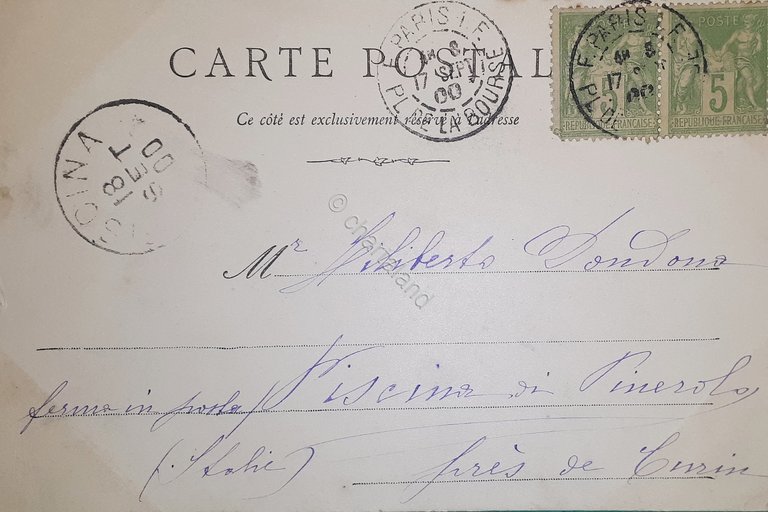 CARTE POSTAL
Ce côté est exclusivement réservé à l'adresse
PARIS I.E.
8
17 SEPT
00
PL. DE LA BOURSE
PARIS
8
17
POSTE
5
REPUBLIQUE FRANÇAISE
REPUBLIQUE FRANÇAISE
18 SET 00
© chartaland
Mr Filiberto Dondona
fermo in posta Piscina di Pinerolo
(Italie) près de Turin